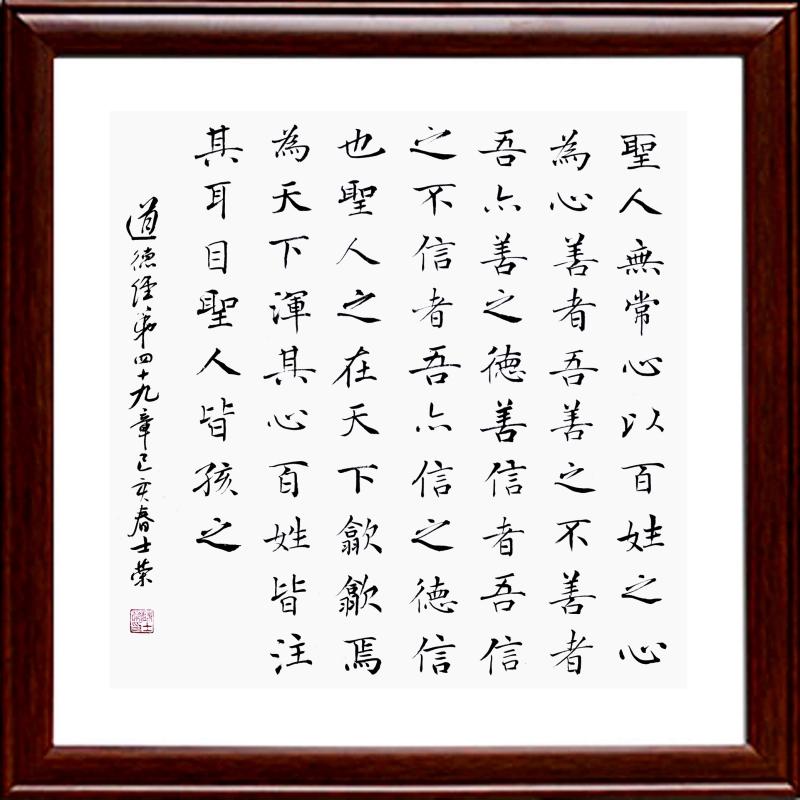 聖人無常心以百姓之心
為心善者吾善之不善者
吾亦善之德善信者吾信
之不信者吾亦信之德信
也聖人之在天下歙歙焉
為天下渾其心百姓皆注
其耳目聖人皆孩之
道德經第四十九章己亥春士榮